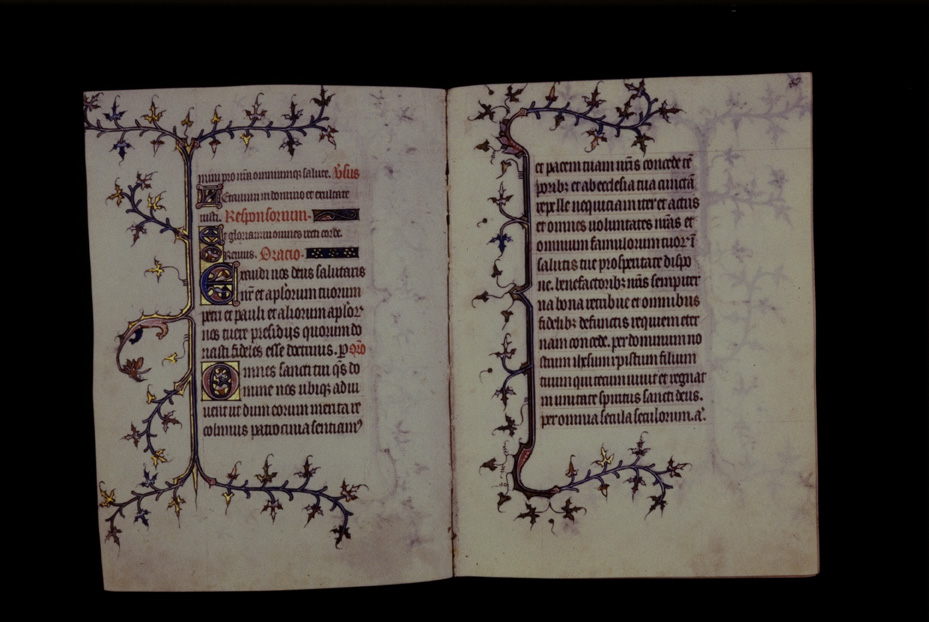 mini pro nr̄a omniumq; salute. Vsus
Letamini in domino et exultate
iusti. Responsorium.
Et gloriamini omnes recti corde.
Oremus. Oracio.
Exaudi nos deus salutaris
nr̄ et apl̄orum tuorum
petri et pauli et aliorum apl̄oꝝ
nos tuere presidijs quorum do
nasti fideles esse doctrinis. P Oro
Omnes sancti tui q̄s do
mine nos ubiq; adiu
uent ut dum eorum merita re
colimus patrocinia sentiam9
et pacem tuam nr̄is concede tē
porib; et ab ecclesia tua cunctā
repelle nequiciam iter et actus
et omnes uoluntates nr̄as et
omnium famulorum tuoꝝ ī
salutis tue prosperitate dispo
ne. benefactorib; nr̄is sempiter
na bona retribue et omnibus
fidelib; defunctis requiem eter
nam concede. per dominum no
strum ih̄esum xp̄istum filium
tuum qui tecum uiuit et regnat
in unitate spiritus sancti deus.
per omnia secula seculorum. a͞.